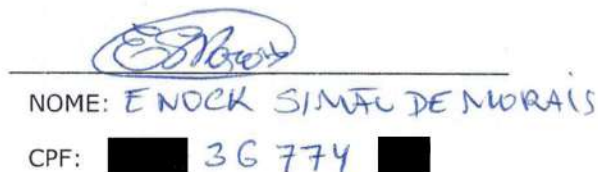 NOME: ENOCK SIMÃO DE MORAIS
CPF: 36 774